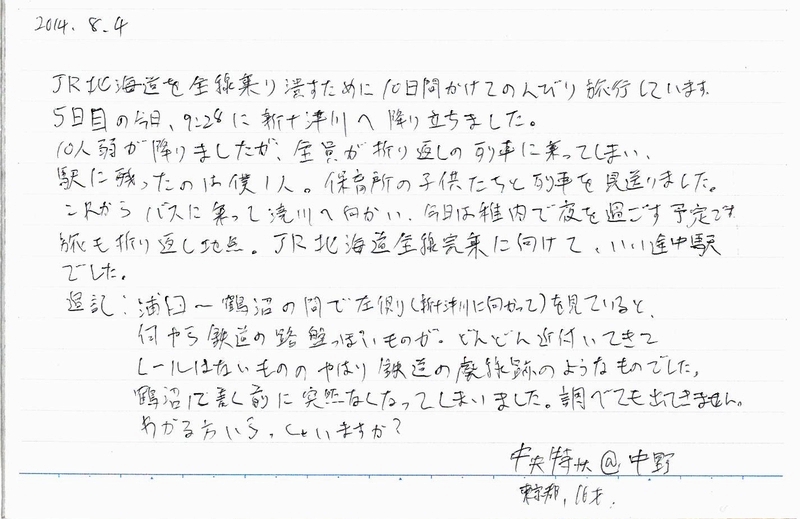 2014.8.4
JR北海道を全線乗り潰すために10日間かけてのんびり旅行しています
5日目の今日、9:28に新十津川へ降り立ちました。
10人弱が降りましたが、全員が折り返しの列車に乗ってしまい、
駅に残ったのは僕1人。保育所の子供たちと列車を見送りました。
これからバスに乗って滝川へ向かい、今日は稚内で夜を過ごす予定です
旅も折り返し地点。JR北海道全線完乗に向けて、いい途中駅
でした。
追記:浦臼〜鶴沼の間で左側(新十津川に向かって)を見ていると、
何やら鉄道の路盤っぽいものが。どんどん近付いてきて
レールはないもののやはり鉄道の廃線跡のようなものでした。
鶴沼に着く前に突然なくなってしまいました。調べても出てきません。
わかる方いらっしゃいますか?
中央特快@中野
東京都,16才.